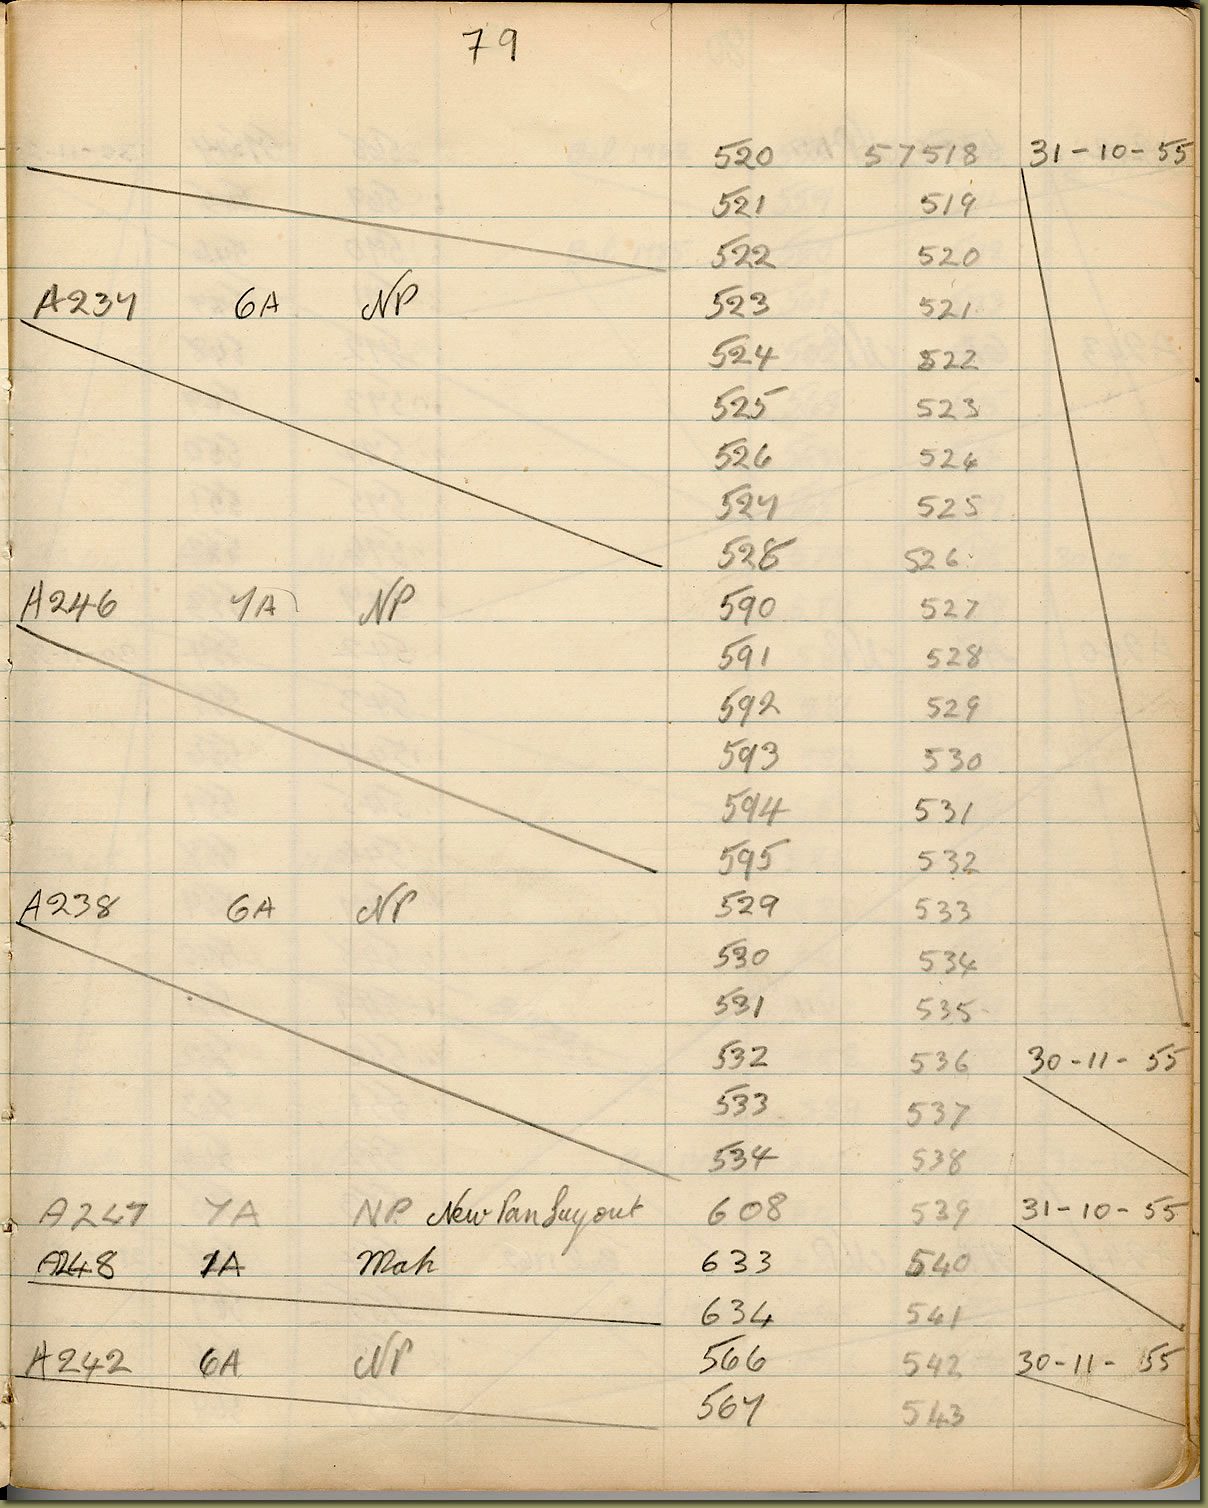 79
520 57518 31-10-55
521 519
522 520
A237 6A NP 523 521
524 522
525 523
526 524
527 525
528 526
A246 7A NP 590 527
591 528
592 529
593 530
594 531
595 532
A238 6A NP 529 533
530 534
531 535
532 536 30-11-55
533 537
534 538
A247 7A NP New Pan Layout 608 539 31-10-55
A248 7A Mah 633 540
634 541
A242 6A NP 566 542 30-11-55
567 543